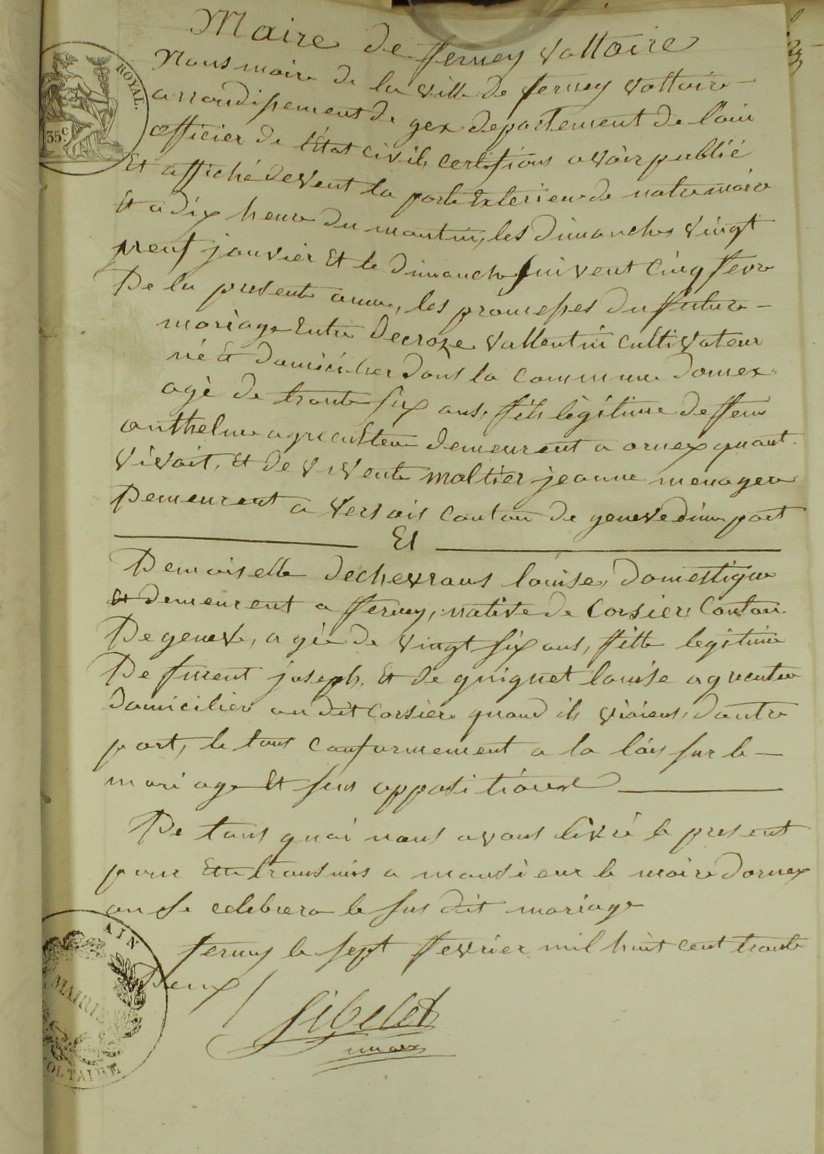 Maire de fferney Voltaire
ROYAL.
35 c
Nous maire de la ville de ferney Voltaire
arrondissement de gex departement de l'ain
officier de l'État civil, certifions avoir publié
Et affiché devent la porte Exterieur de notre mairie
Et a dix heure du mantin, les dimanche vingt
neuf janvier Et le dimanche suivent Cinq fevr
De la presente anne, les promesses du ffutur
mariage Entre Decroze Vallentin Cultivateur
né Et domicilier dans la commune dornex
agé de trante six ans, ffils légitime de ffeu
anthelme agriculteur demeurent a ornex quant
vivait, Et de vivente maltier jeanne menagere
Demeurent a Versois Canton de geneve d'une part
Et
Demoiselle dechevrans louise, Domestique
demeurent a fferney, native de Corsier Canton
De geneve, agée de vingt six ans, ffille legitime
De furent joseph. Et de guignet louise
domicilier au dit Corsier quand ils vivient, d'autre
part, le tous conformement a la lois sur le
mariage Et sens oppositions
De tous quoi nous avons livré le present
pour Etre transmis a monsieur le maire dornex
ou se celebrera le sus dit mariage
ferney le sept ffevrier mil huit cent trante
Deux
maire
AIN
MAIRIE
VOLTAIRE